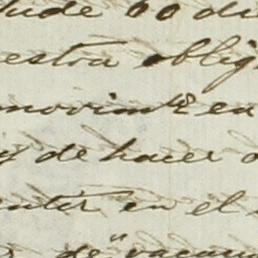 tude 60 di
estra oblig
movimte en
y de hacer
enter en el
de "vacun